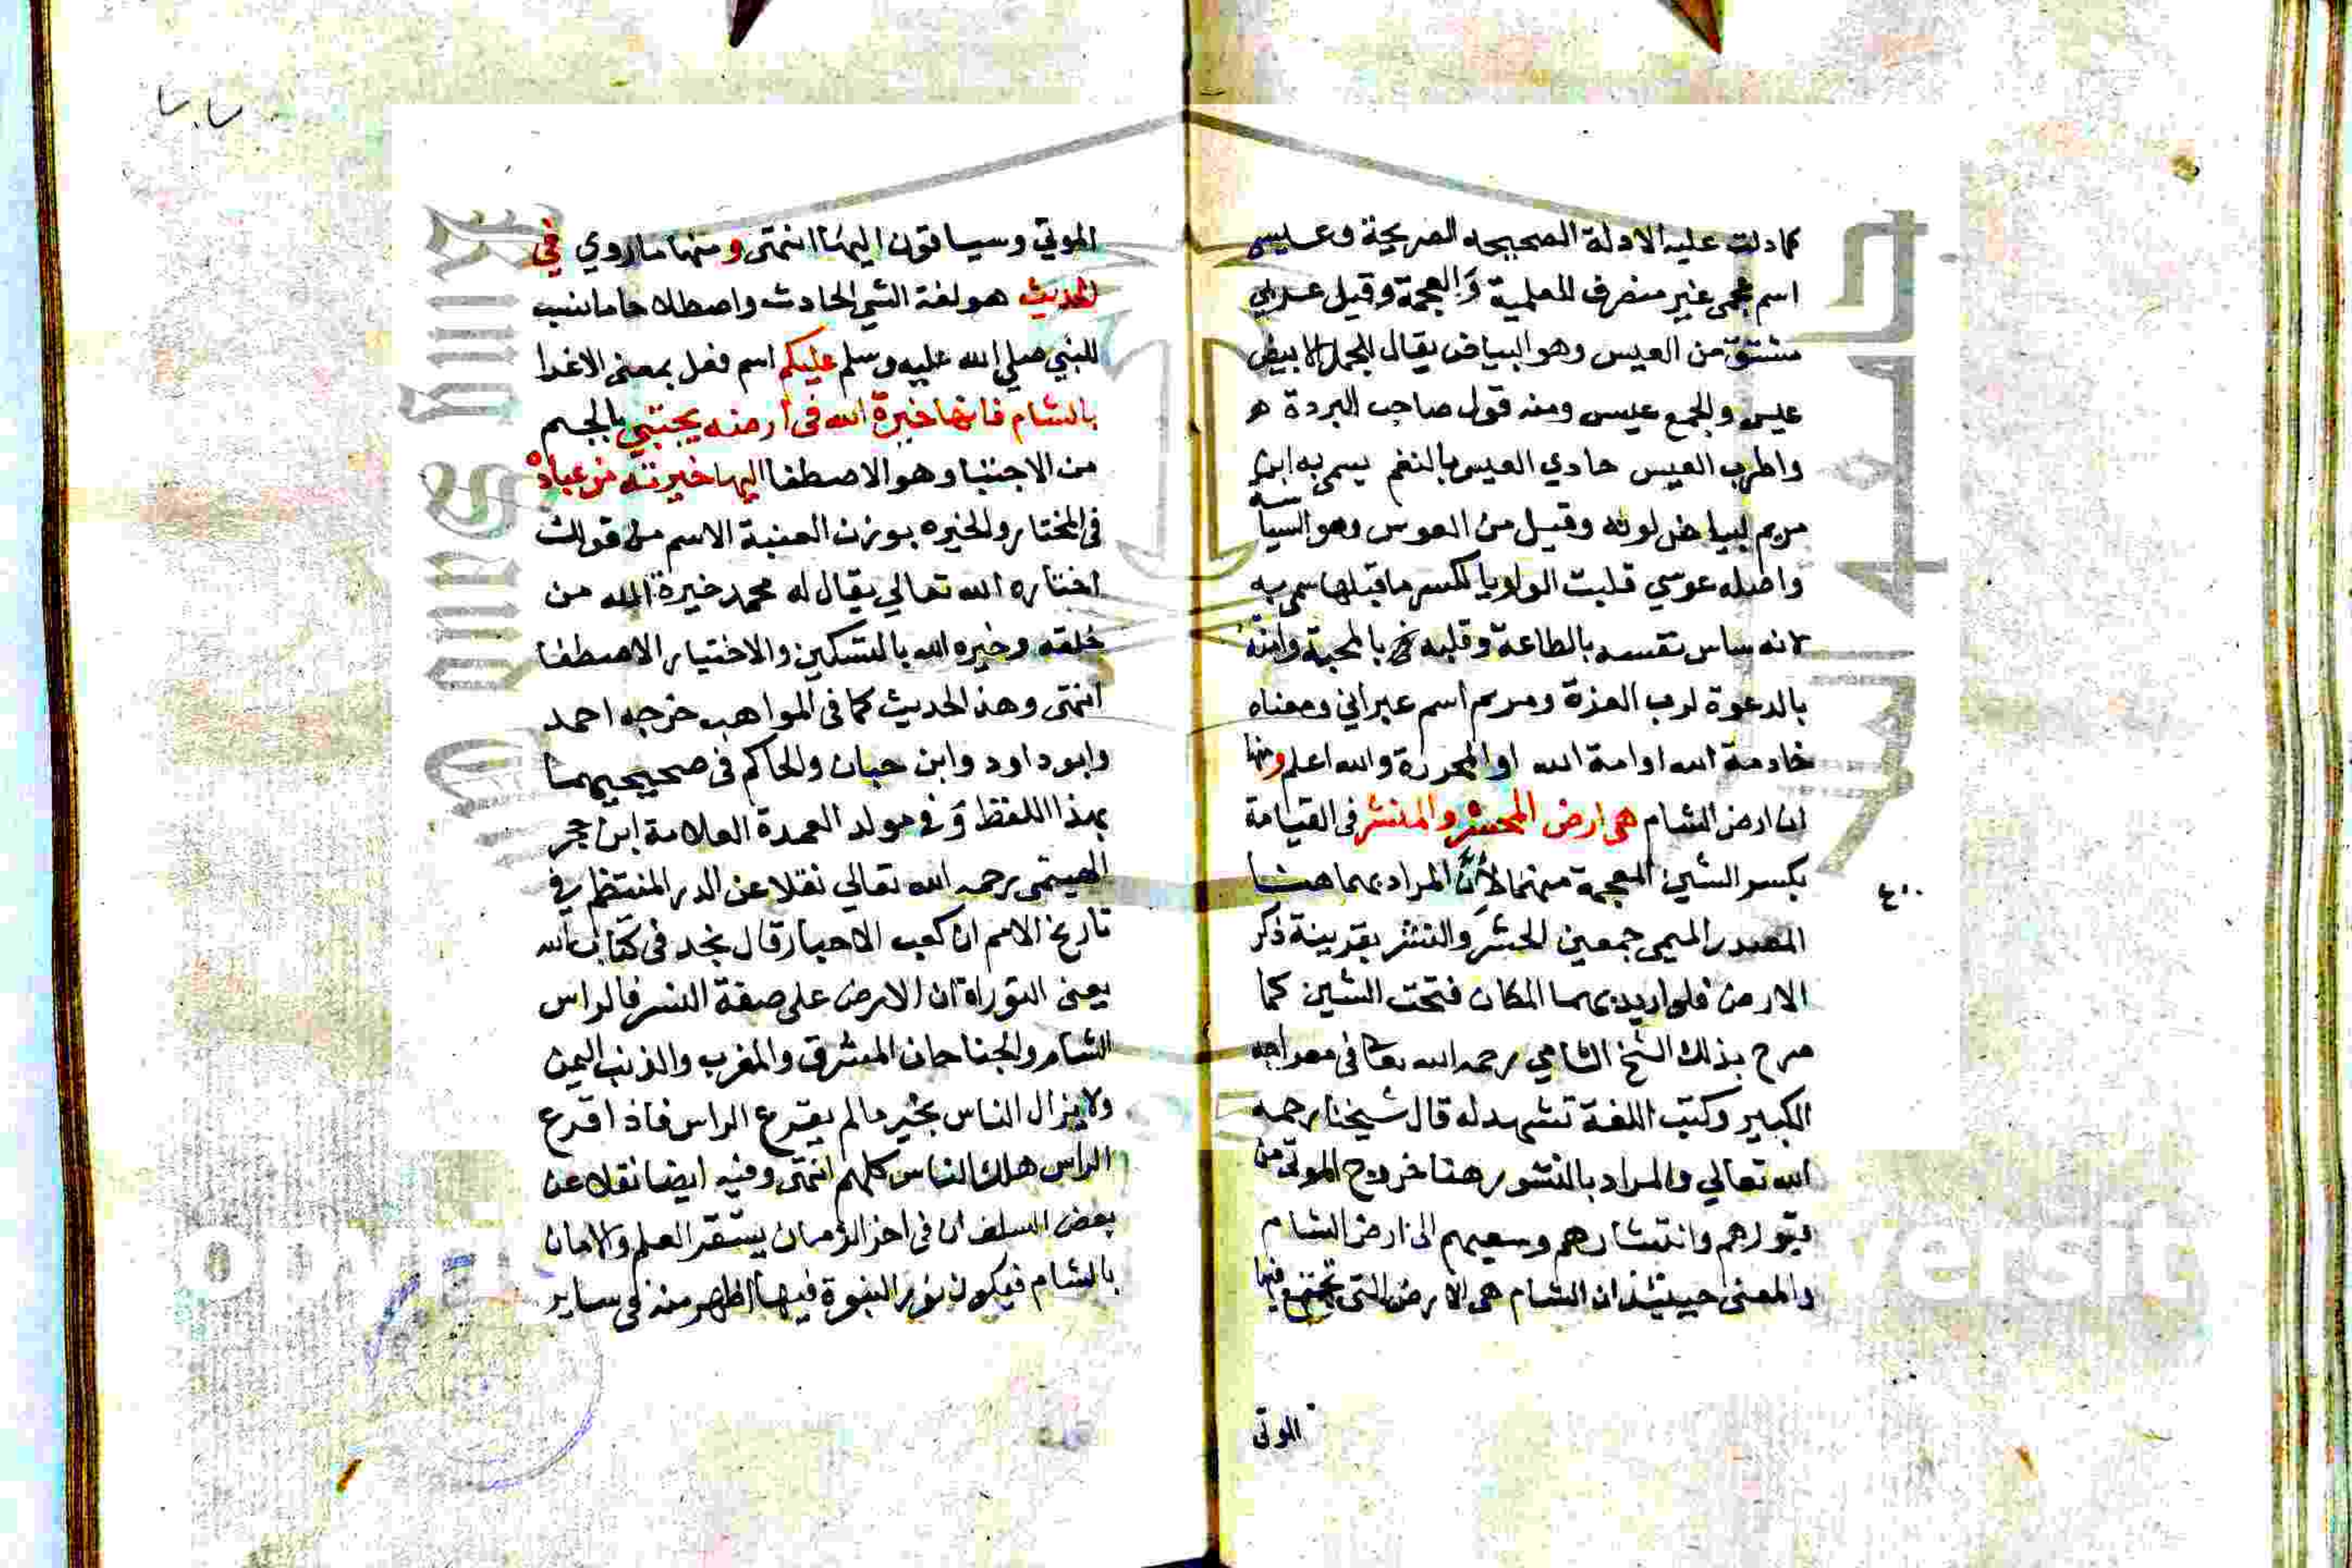 كما دلت عليه الادلة الصحيحه الصريحة وعيسى
اسم عجمى غير منصرف للعلمية وَالعجمة وقيل عربي
مشتق من العيس وهو البياض يقال للجمل الابيض
عيس والجمع عيس ومنه قول صاحب البردة
واطرب العيس حادي العيس بالنغم يسمى به ابن
مريم لبياض لونه وقيل من العوس وهو السياسة
واصله عوسي قلبت الواو يا لكسر ما قبلها سمى به
لانه ساس نفسه بالطاعة وقلبه بالمحبة وامته
بالدعوة لرب العزة ومريم اسم عبراني ومعناه
خادمة الله او امة الله او المحررة والله اعلم ومنها
ان ارض الشام هى ارض المحشر والمنشر فى القيامة
بكسر الشين المعجمة منهما لأنَّ المراد بهما هنا
المصدر الميمى جمعين الحشر وَالنشر بقرينة ذكر
الارض فلو اريد بهما المكان فتحت الشين كما
صرح بذلك الشيخ الشامي رحمه الله تعا فى معراجه
الكبير وكتب اللغة تشهد له قال شيخنا رحمه
الله تعالي والمراد بالنشور هنا خروج الموتى من
قبورهم وانتشارهم وسعيهم الى ارض الشام
والمعنى حينئذ ان الشام هى الارض التى تجتمع فيها
الموتى
الموتي وسيساقون اليها انتهى ومنها ما روي في
الحديث هو لغة الشي الحادث واصطلاحا ما نسب
للنبي صلي الله عليه وسلم عليكم اسم فعل بمعنى الاغدا
بالشام فانها خيرة الله فى ارضه يجتبي بالجيم
من الاجتبا وهو الاصطفا اليها خيرته من عباده
فى المختار والخيره بوزن العنبة الاسم من قولك
اختاره الله تعالي يقال له محمد خيرة الله من
خلقه وخيره الله بالتسكين والاختيار الاصطفا
انتهى وهذ الحديث كما فى المواهب خرجه احمد
وابو داود وابن حبان والحاكم فى صحيحيهما
بهذا اللفظ وَفي مولد العمدة العلامة ابن حجر
الهيتمى رحمه الله تعالي نقلا عن الدر المنتظم في
تاريخ الامم ان كعب الاحبار قال نجد فى كتاب الله
يعنى التوراة ان الارض على صفة النسر فالراس
الشام والجناحان المشرق والمغرب والذنب اليمن
ولا يزال الناس بخير مالم يقرع الراس فاذا قرع
الراس هلك الناس كلهم انتهى وفيه ايضا نقلا عن
بعض السلف ان فى اخر الزمان يستقر العلم والامان
بالشام فيكون نور النبوة فيها اظهر منه فى ساير